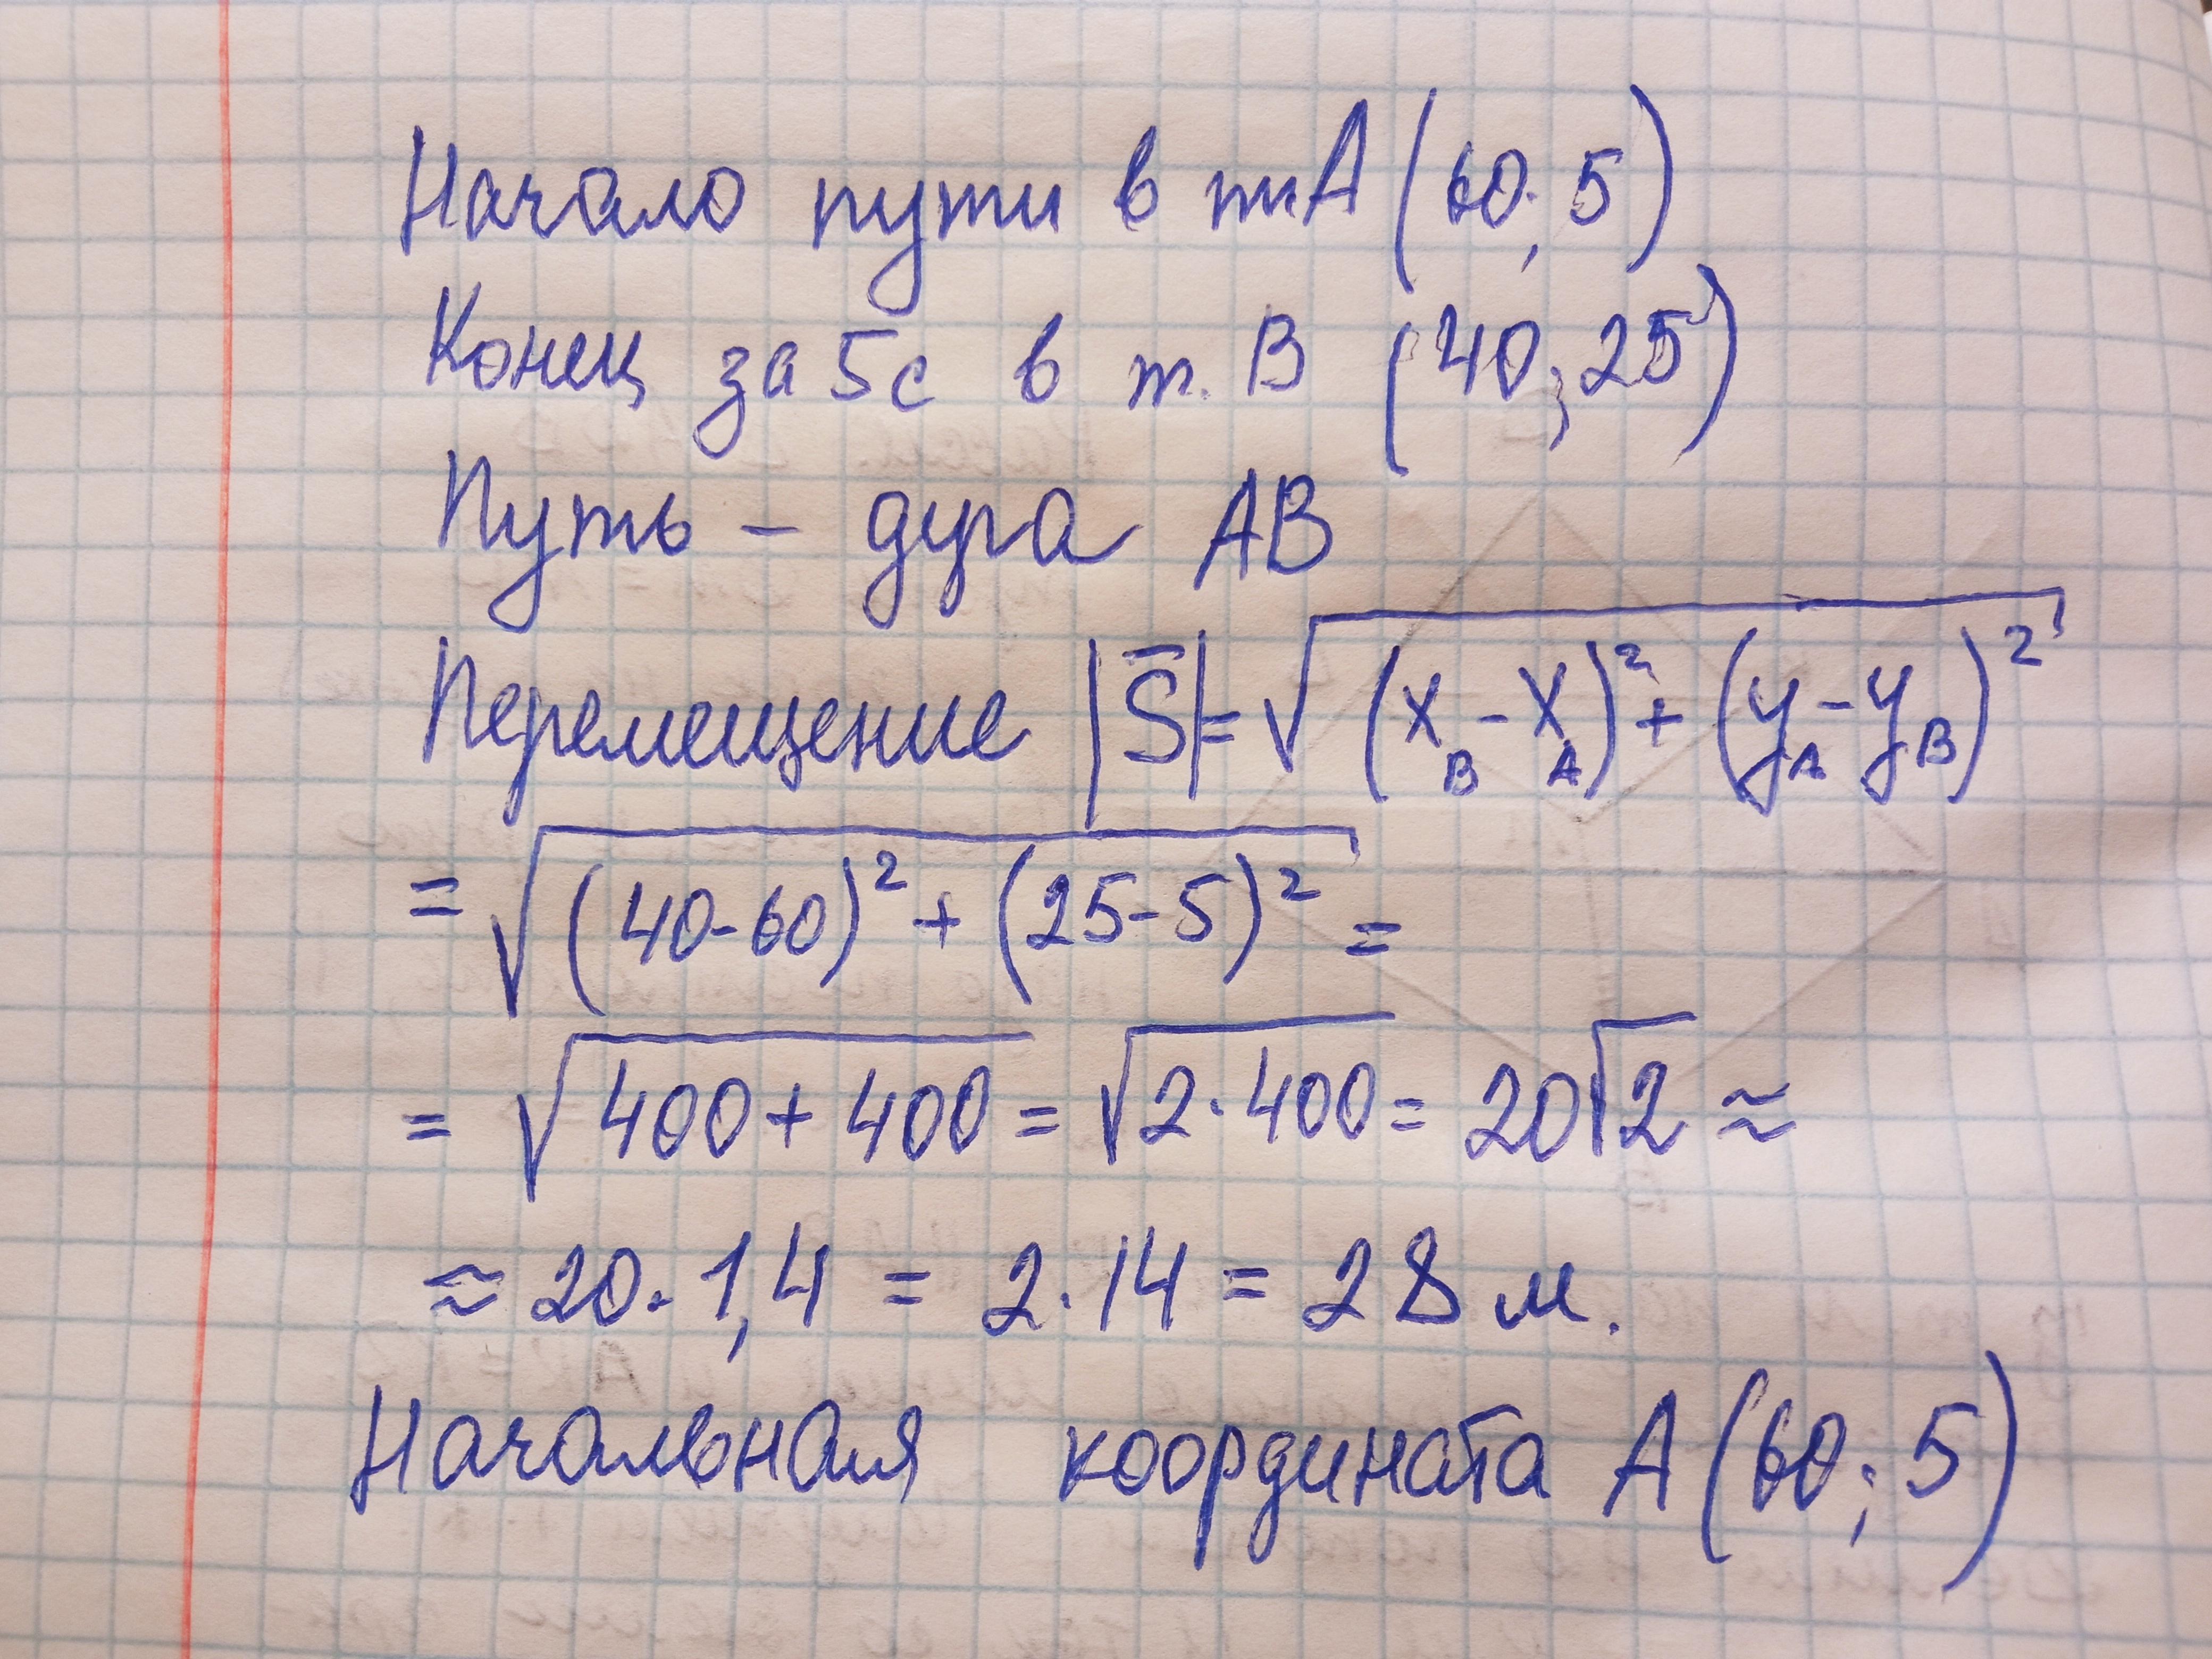 Начало пути в т.А (60; 5)
Конец за 5с в т. В (40; 25)
Путь – дуга АВ
Перемещение |S̅|= √((x_B - x_A)² + (y_A - y_B)²)
= √((40-60)² + (25-5)²) =
= √(400 + 400) = √(2·400) = 20√2 ≈
≈ 20 · 1,4 = 2 · 14 = 28 м.
Начальная координата А (60; 5)